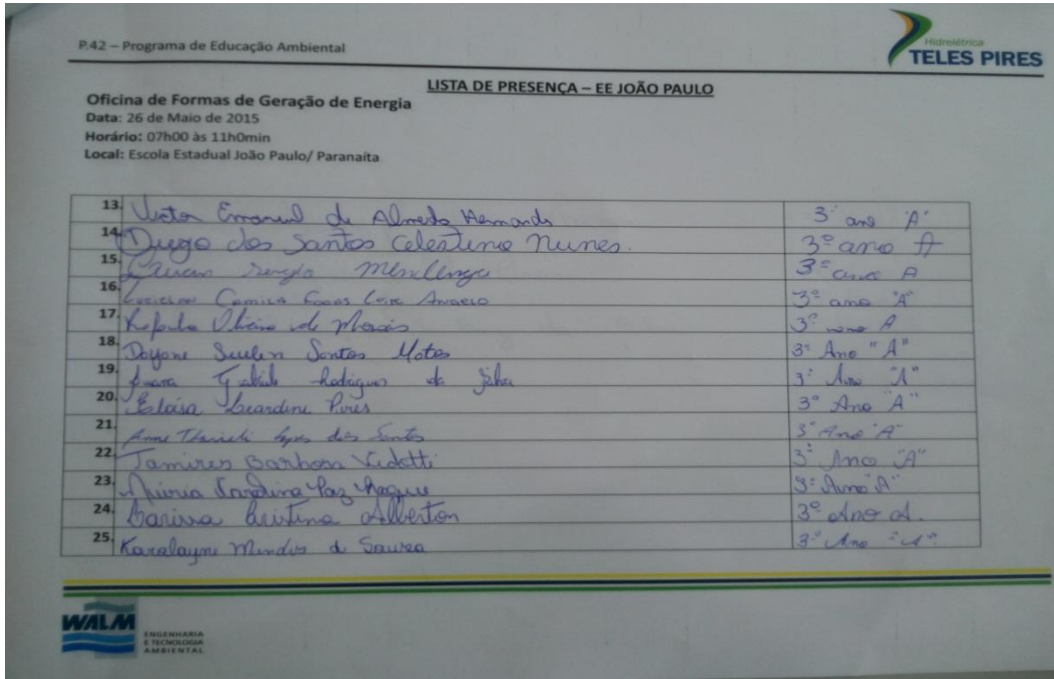 P.42 – Programa de Educação Ambiental
Hidrelétrica
TELES PIRES
LISTA DE PRESENÇA – EE JOÃO PAULO
Oficina de Formas de Geração de Energia
Data: 26 de Maio de 2015
Horário: 07h00 às 11h0min
Local: Escola Estadual João Paulo/ Paranaíta
13. Victor Emanuel de Almeda Hernands 3º ano "A"
14. Diego dos Santos Celestino Nunes. 3º ano A
15. Sergio 3º ano A
16. Camila 3º ano "A"
17. de Morais 3º ano A
18. Dayane Suelen Santos Matos 3º Ano "A"
19. Rodrigues da Silva 3º Ano "A"
20. Eloisa Leardine Pires 3º Ano "A"
21. Anne Lopes dos Santos 3º Ano "A"
22. Tamires Barbosa Vidotti 3º Ano "A"
23. Carolina Paz 3º Ano "A"
24. Larissa Cristina Alberton 3º Ano A.
25. Karolayne Mendes de Souza 3º Ano "A"
WALM
ENGENHARIA
E TECNOLOGIA
AMBIENTAL